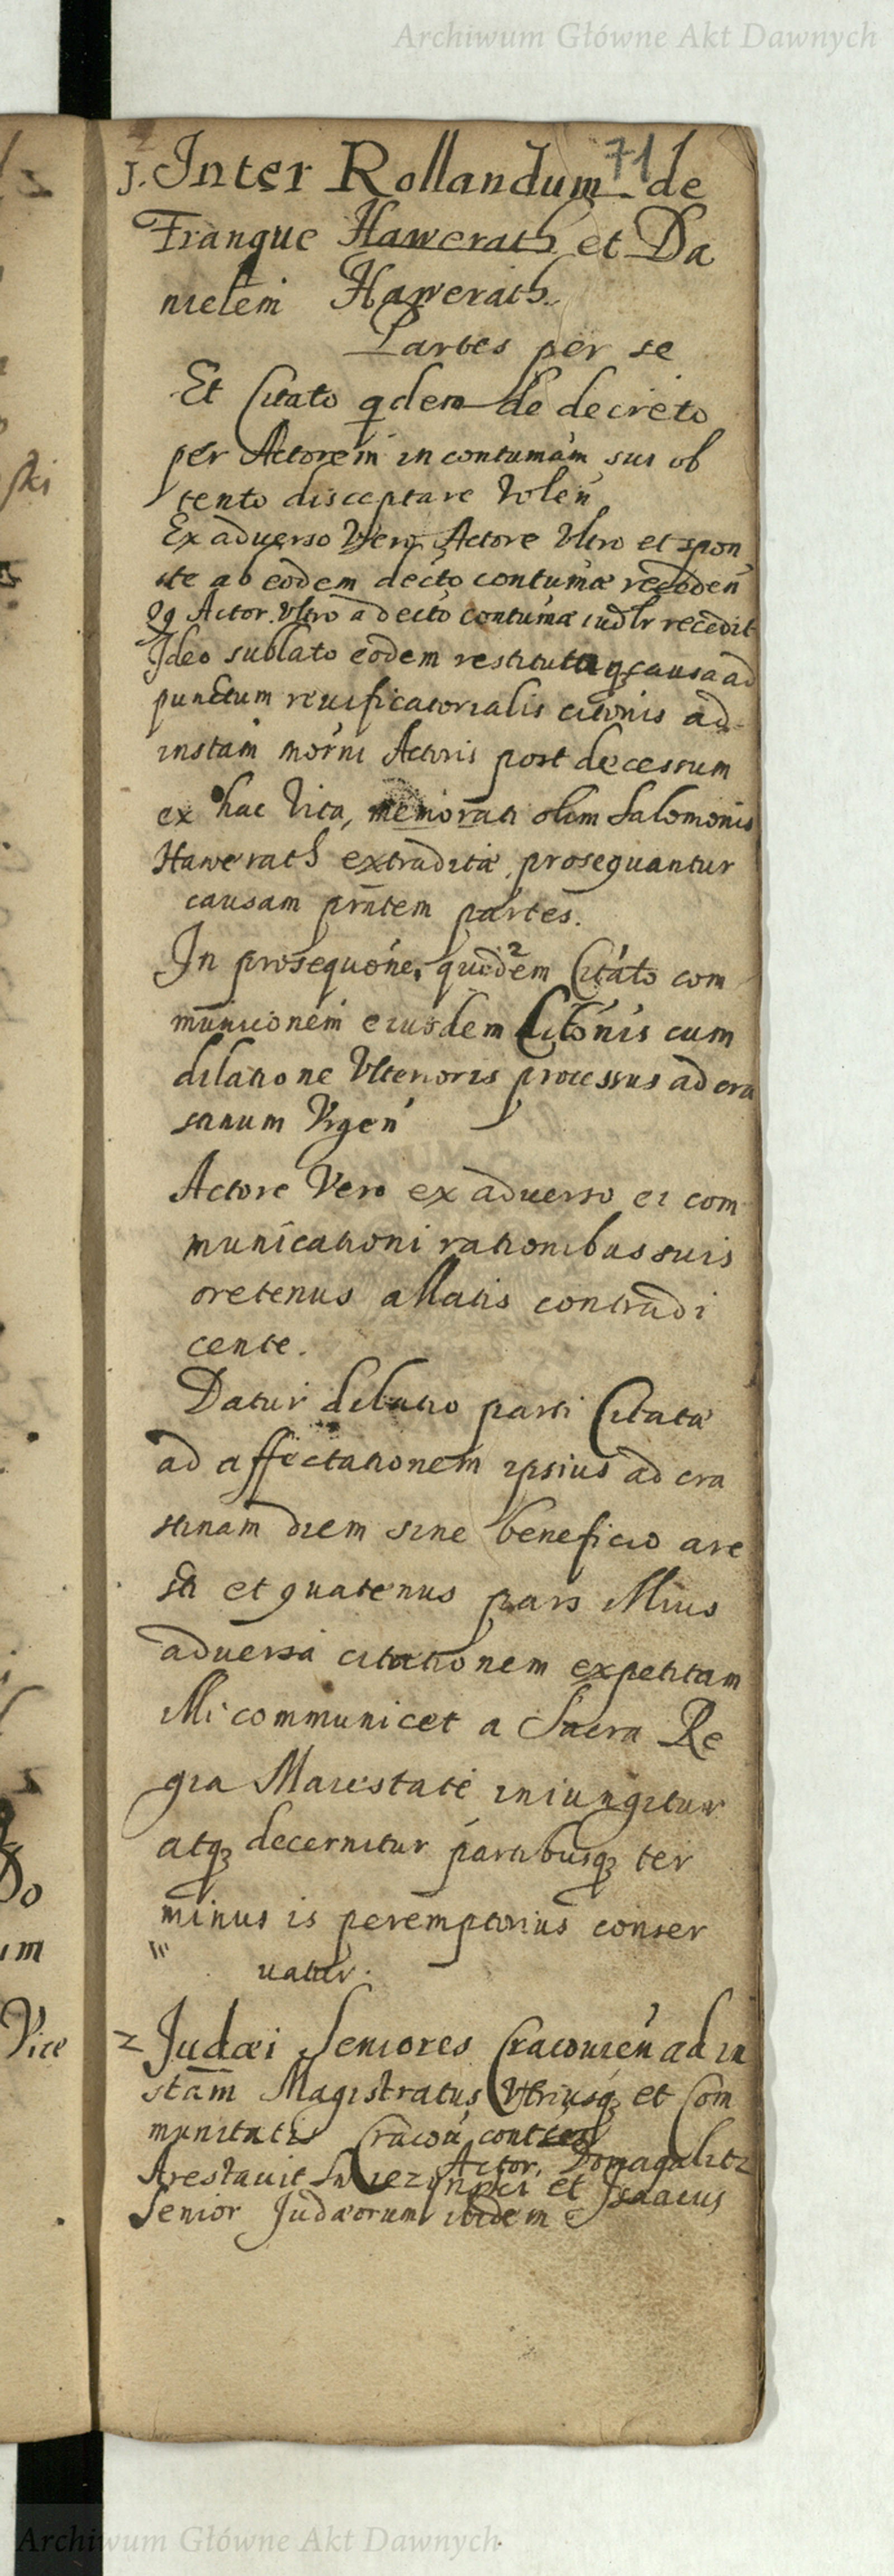 Archiwum Główne Akt Dawnych
71
1. Inter Rollandum de
Franque Hawerath et Da
nielem Hawerath.
Partes per se
Et Citato qdem de decreto
per Actorem in contumam sui ob
tento disceptare volen
Ex adverso Vero Actore Vltro et spon
te ab eodem decto contumæ receden
Qq Actor Vltro a decto contumæ iudlr recedit
Ideo sublato eodem restitutaq causa ad
punctum reuificatorialis citonis ad
instam morni Actoris post decessum
ex hac Vita, memorati olim Salomonis
Hawerath extraditæ, prosequantur
causam prntem partes.
In prosequone, quidem Citato com
municionem eiusdem Citonis cum
dilatione Vlterioris processus ad cra
stinum Vrgen
Actore Vero ex aduerso ei com
municationi rationibus suis
oretenus allatis contradi
cente.
Datur dilatio parti Citatæ
ad affectationem ipsius ad cra
stinam diem sine beneficio are
sti et quatenus pars illius
aduersa citationem expetitam
illi communicet a Sacra Re
gia Maiestate iniungitur
atq decernitur partibusq ter
minus is peremptorius conser
uatur.
2 Judæi Seniores Cracouien ad in
stam Magistratus Vtriusq et Com
munitatis Cracou
Actor, Domagalicz
Arestauit et Isaacus
Senior Judæorum ibidem
Vice
Archiwum Główne Akt Dawnych